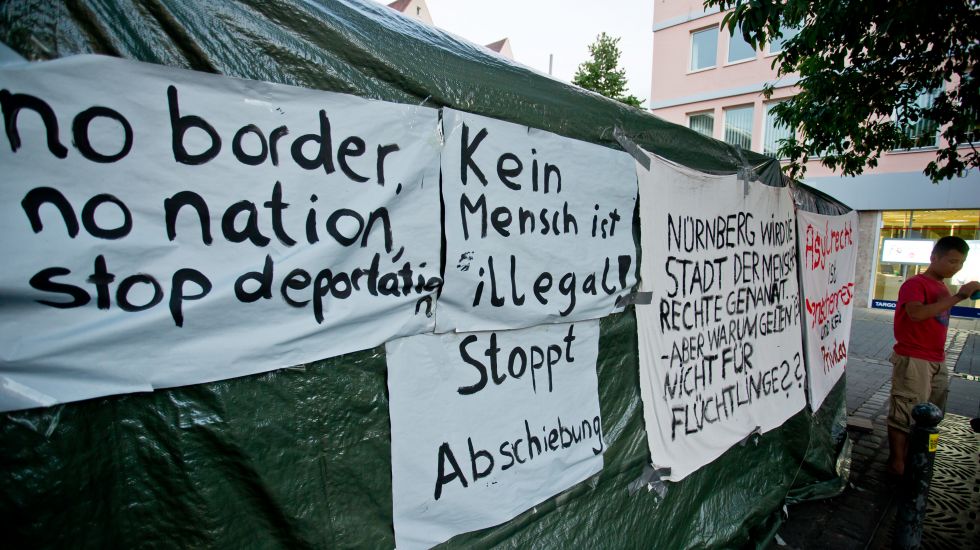 no border,
no nation,
stop deportation
Kein
Mensch ist
illegal!
Stoppt
Abschiebung
NÜRNBERG WIRD DIE
STADT DER MENSCH
RECHTE GENANNT
-ABER WARUM GELTEN
NICHT FÜR
FLÜCHTLINGE??
Asylrecht
ist
Menschenrecht
und kein
Privileg
TARGO